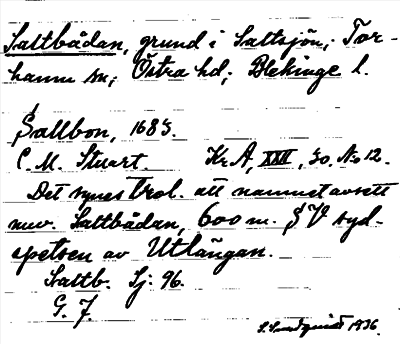 Saltbådan, grund i Saltsjön; Tor-
hamn sn; Östra hd; Blekinge l.
Sallbon, 1683.
C. M. Stuart. Kr A, XXI, 30, No 12.
Det synes trol. att namnet avsett
nuv. Saltbådan, 600 m. SV syd-
spetsen av Utlängan.
Saltb. Sj: 96.
G. F.
S. Sundquist 1936.